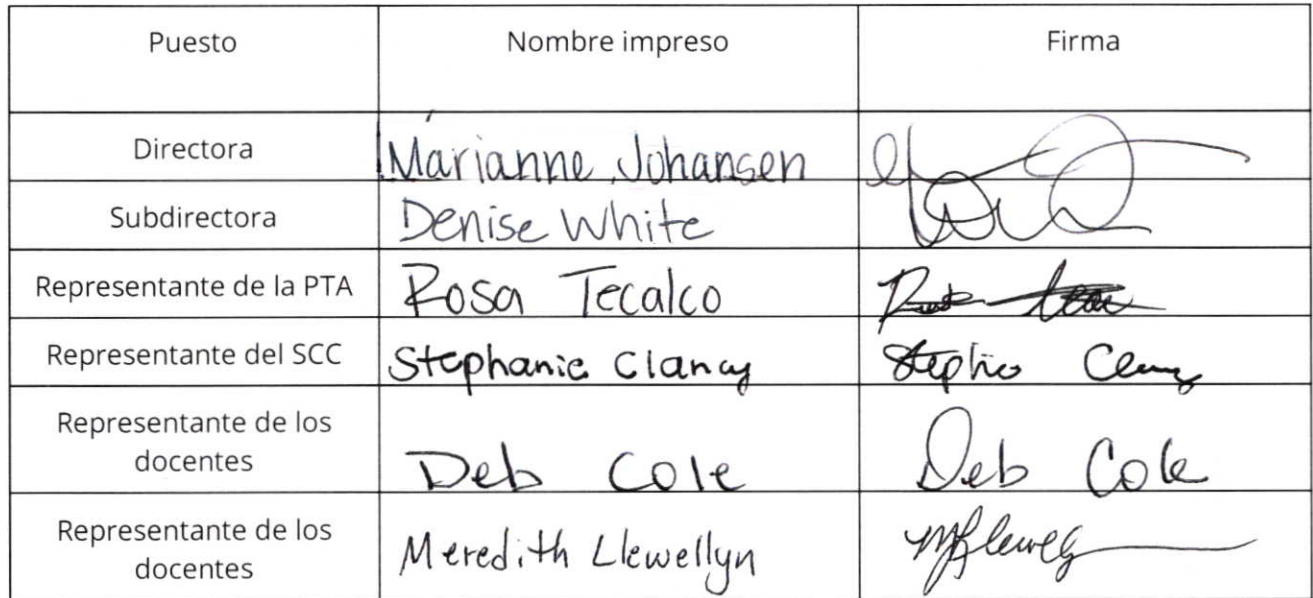 Puesto Nombre impreso Firma
Directora Marianne Johansen
Subdirectora Denise White
Representante de la PTA Rosa Tecalco
Representante del SCC Stephanie Clancy
Representante de los
docentes Deb Cole Deb Cole
Representante de los
docentes Meredith Llewellyn